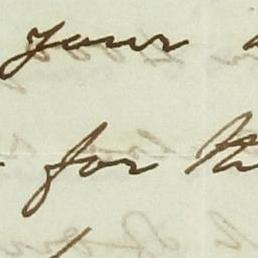 your
for th